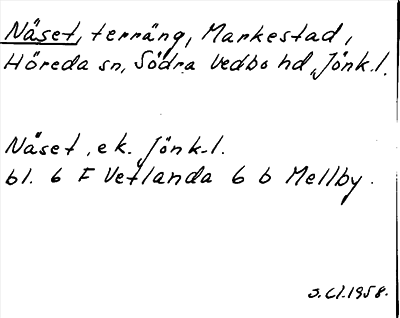 Näset, terräng, Markestad,
Höreda sn, Södra Vedbo hd, Jönk.l.
Näset, ek. Jönk.l.
bl. 6 F Vetlanda 6 b Mellby.
S. Cl. 1958.